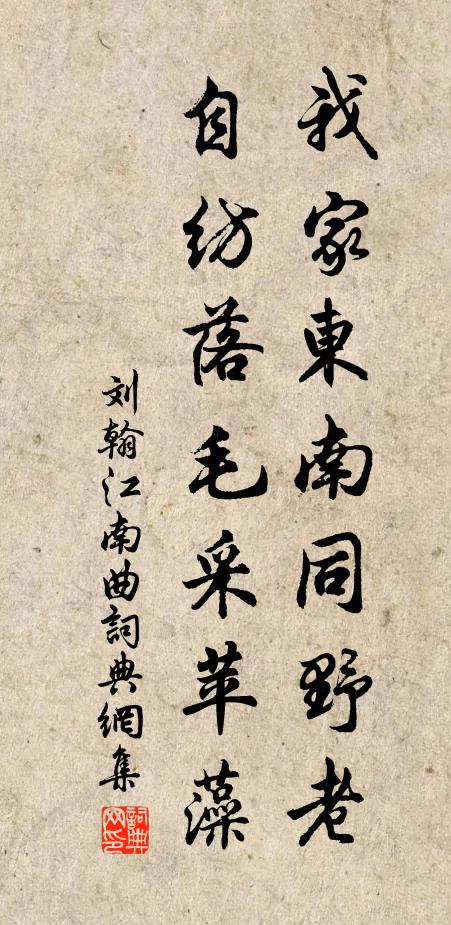 我家東南同野老
自紡落毛采苹藻
刘翰江南曲詞典網集
詞典网印